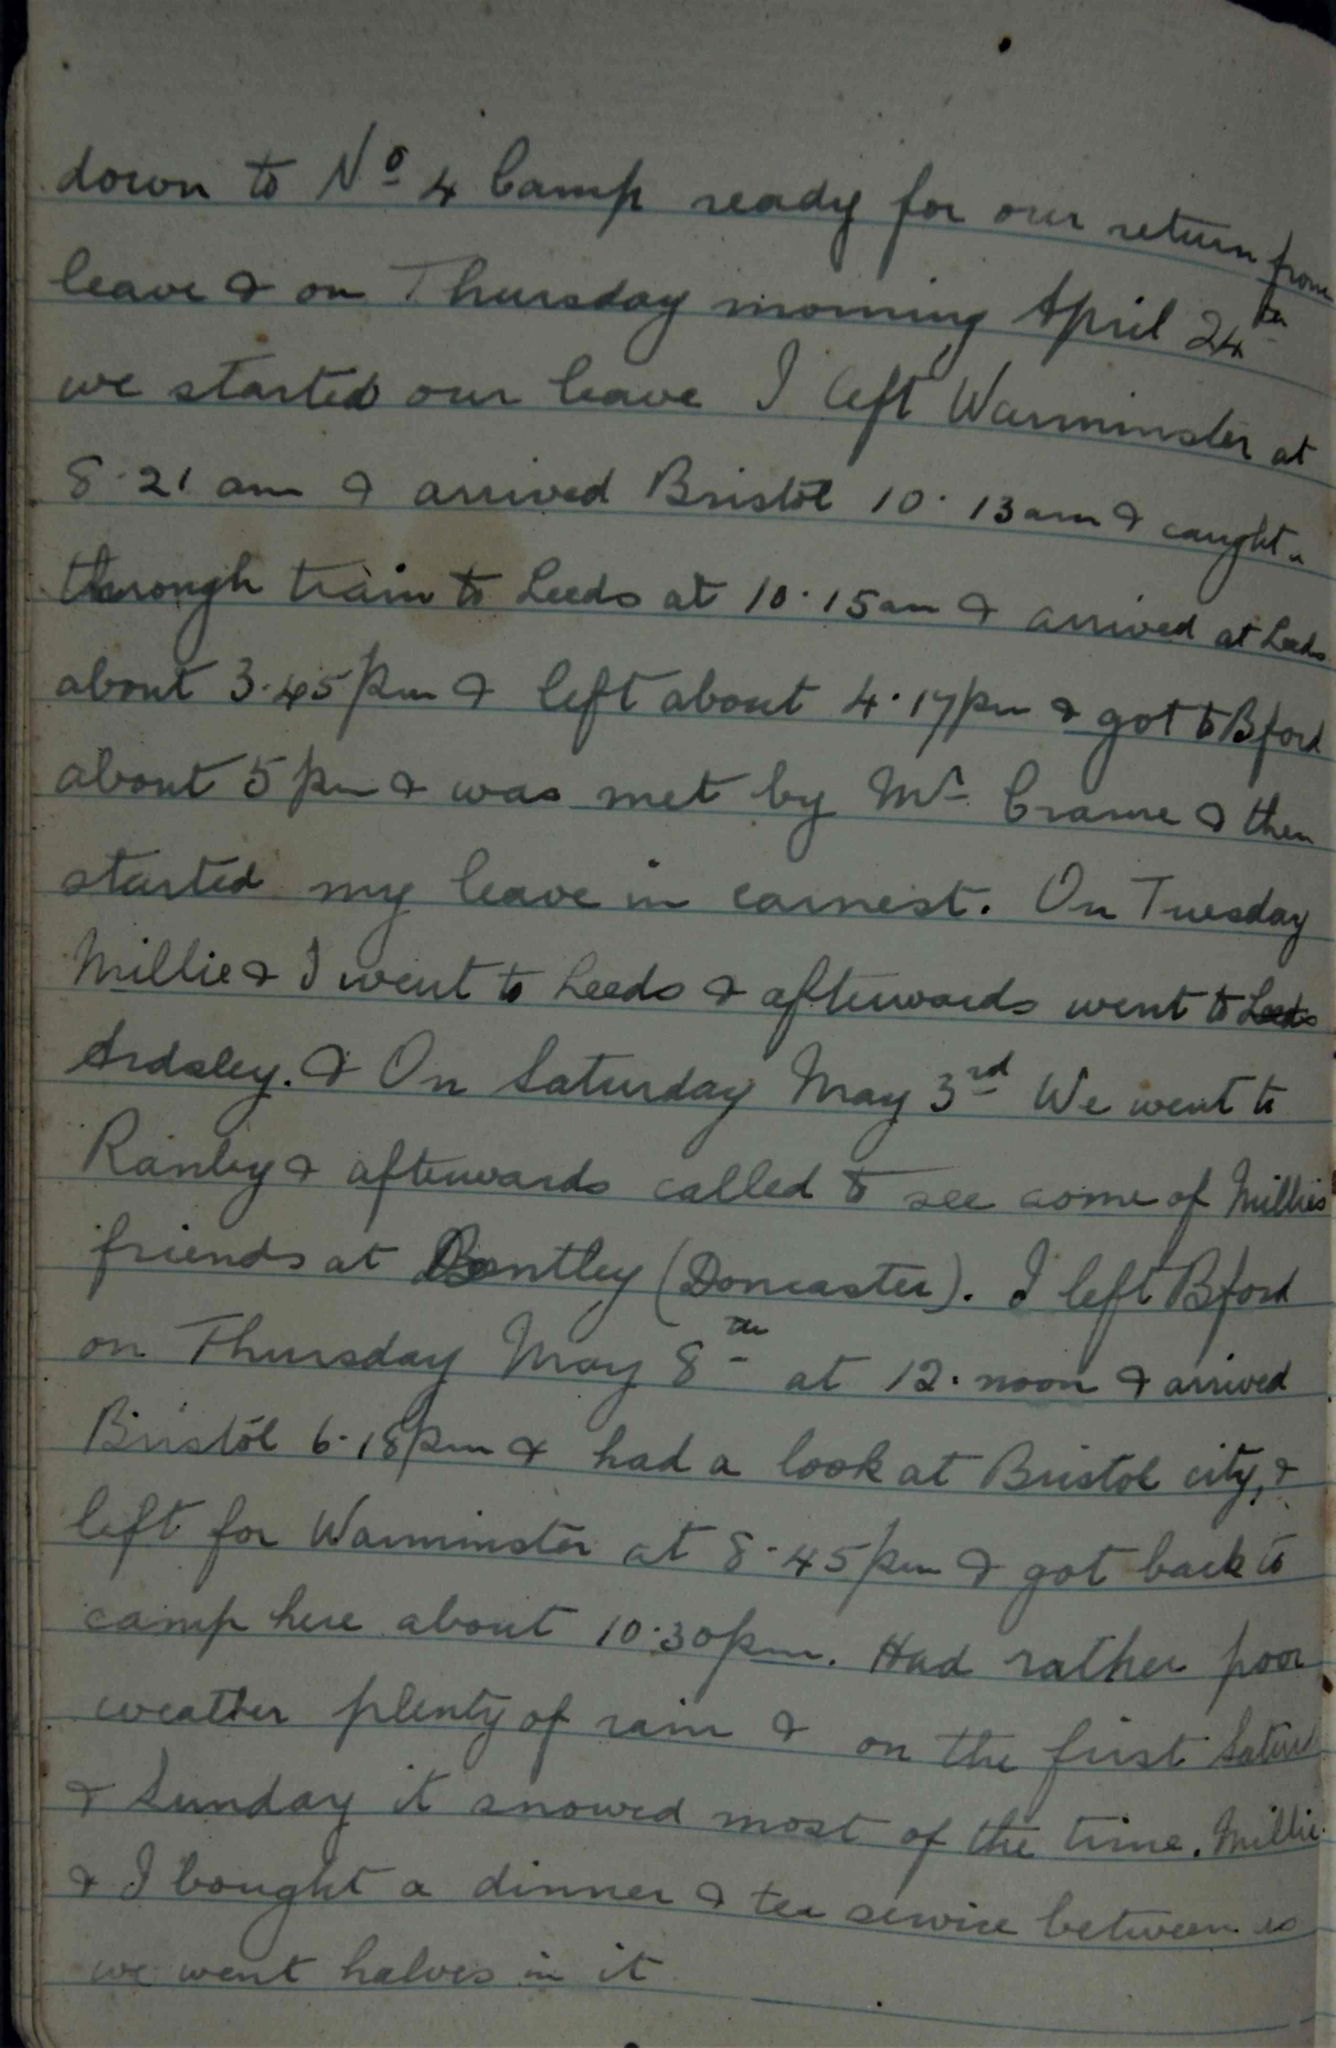 down to Nº 4 Camp ready for our return from
leave & on Thursday morning April 24th
we started our leave I left Warminster at
8.21 am & arrived Bristol 10.13am & caught a
through train to Leeds at 10.15am & arrived at Leeds
about 3.45pm & left about 4.17pm & got to Bford
about 5pm & was met by Mr Crame & then
started my leave in earnest. On Tuesday
Millie & I went to Leeds & afterwards went to Leeds
Ardsley. & On Saturday May 3rd We went to
Ranby & afterwards called to see some of Millies
friends at Bentley (Doncaster). I left Bford
on Thursday May 8th at 12.noon & arrived
Bristol 6.18pm & had a look at Bristol city, &
left for Warminster at 8.45pm & got back to
camp here about 10.30pm. Had rather poor
weather plenty of rain & on the first Saturd
& Sunday it snowed most of the time. Millie
& I bought a dinner & tea service between us
we went halves in it